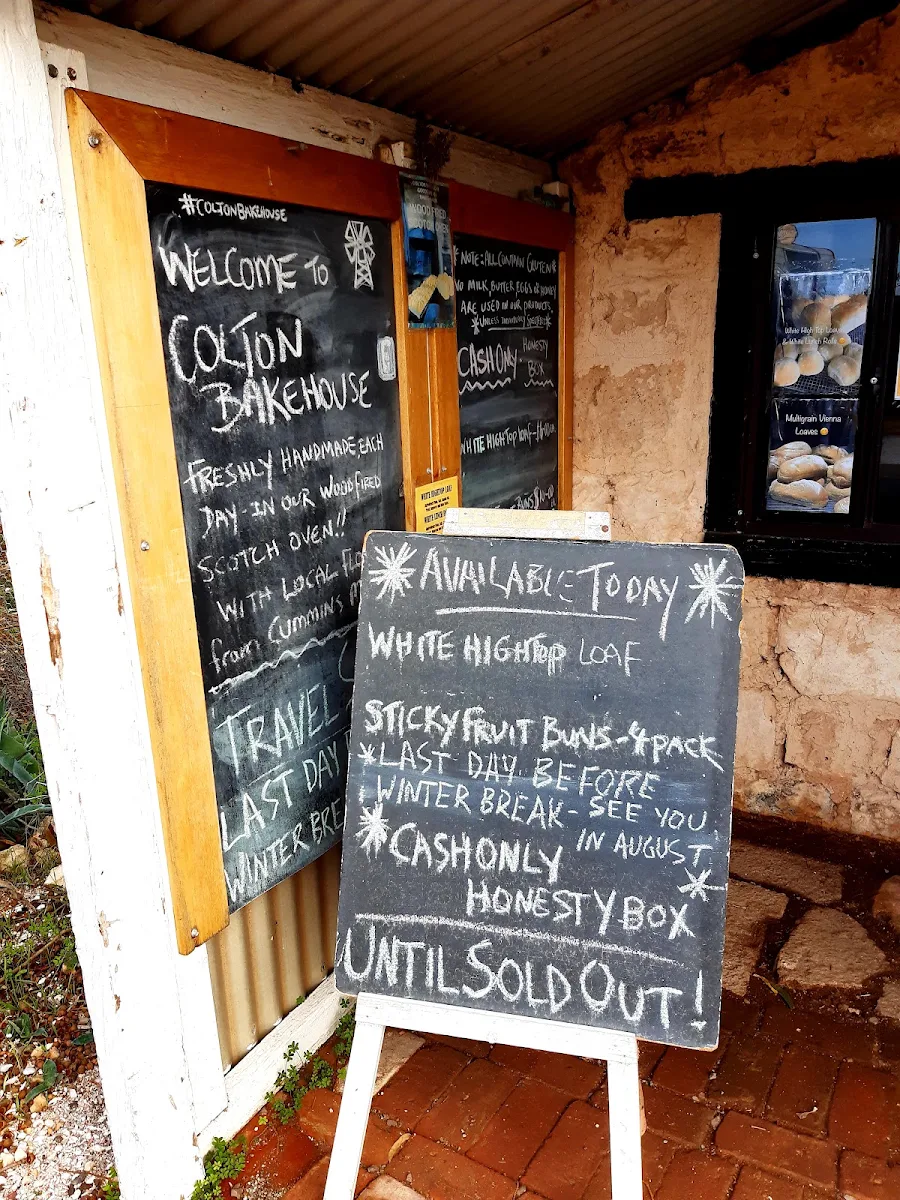 #COLTONBAKEHOUSE
WELCOME TO
COLTON
BAKEHOUSE
FRESHLY HANDMADE, EACH
DAY-IN OUR WOODFIRED
SCOTCH OVEN!!
WITH LOCAL
from CUMMINS
TRAVEL
LAST DAY
WINTER
WOOD FIRED
*NOTE: ALL CONTAIN GLUTEN*
NO MILK, BUTTER, EGGS OR HONEY
ARE USED IN OUR PRODUCTS
*UNLESS SPECIFIED*
CASH ONLY · HONESTY
BOX
WHITE HIGHTOP LOAF-
WHITE HIGHTOP LOAF
White High Top Loaves
& White Lunch Rolls
Multigrain Vienna
Loaves
AVAILABLE TODAY
WHITE HIGHTOP LOAF
STICKY FRUIT BUNS-4PACK
*LAST DAY BEFORE
WINTER BREAK - SEE YOU
IN AUGUST
*CASH ONLY
HONESTY BOX
UNTIL SOLD OUT!